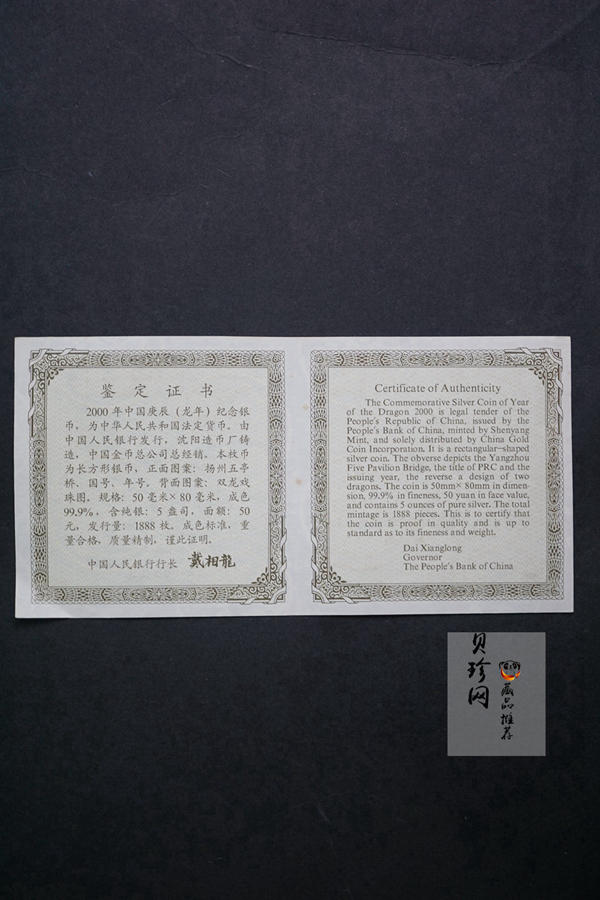 鉴定证书
2000年中国庚辰（龙年）纪念银
币，为中华人民共和国法定货币。由
中国人民银行发行，沈阳造币厂铸
造，中国金币总公司总经销。本枚币
为长方形银币，正面图案：扬州五亭
桥、国号、年号。背面图案：双龙戏
珠图。规格：50毫米×80毫米，成色
99.9%，含纯银：5盎司，面额：50
元，发行量：1888枚。成色标准，重
量合格，质量精制，谨此证明。
中国人民银行行长 戴相龍
Certificate of Authenticity
The Commemorative Silver Coin of Year
of the Dragon 2000 is legal tender of the
People's Republic of China, issued by the
People's Bank of China, minted by Shenyang
Mint, and solely distributed by China Gold
Coin Incorporation. It is a rectangular-shaped
silver coin. The obverse depicts the Yangzhou
Five Pavilion Bridge, the title of PRC and the
issuing year, the reverse a design of two
dragons. The coin is 50mm×80mm in dimen-
sion, 99.9% in fineness, 50 yuan in face value,
and contains 5 ounces of pure silver. The total
mintage is 1888 pieces. This is to certify that
the coin is proof in quality and is up to
standard as to its fineness and weight.
Dai Xianglong
Governor
The People's Bank of China
贝珍网
藏品推荐